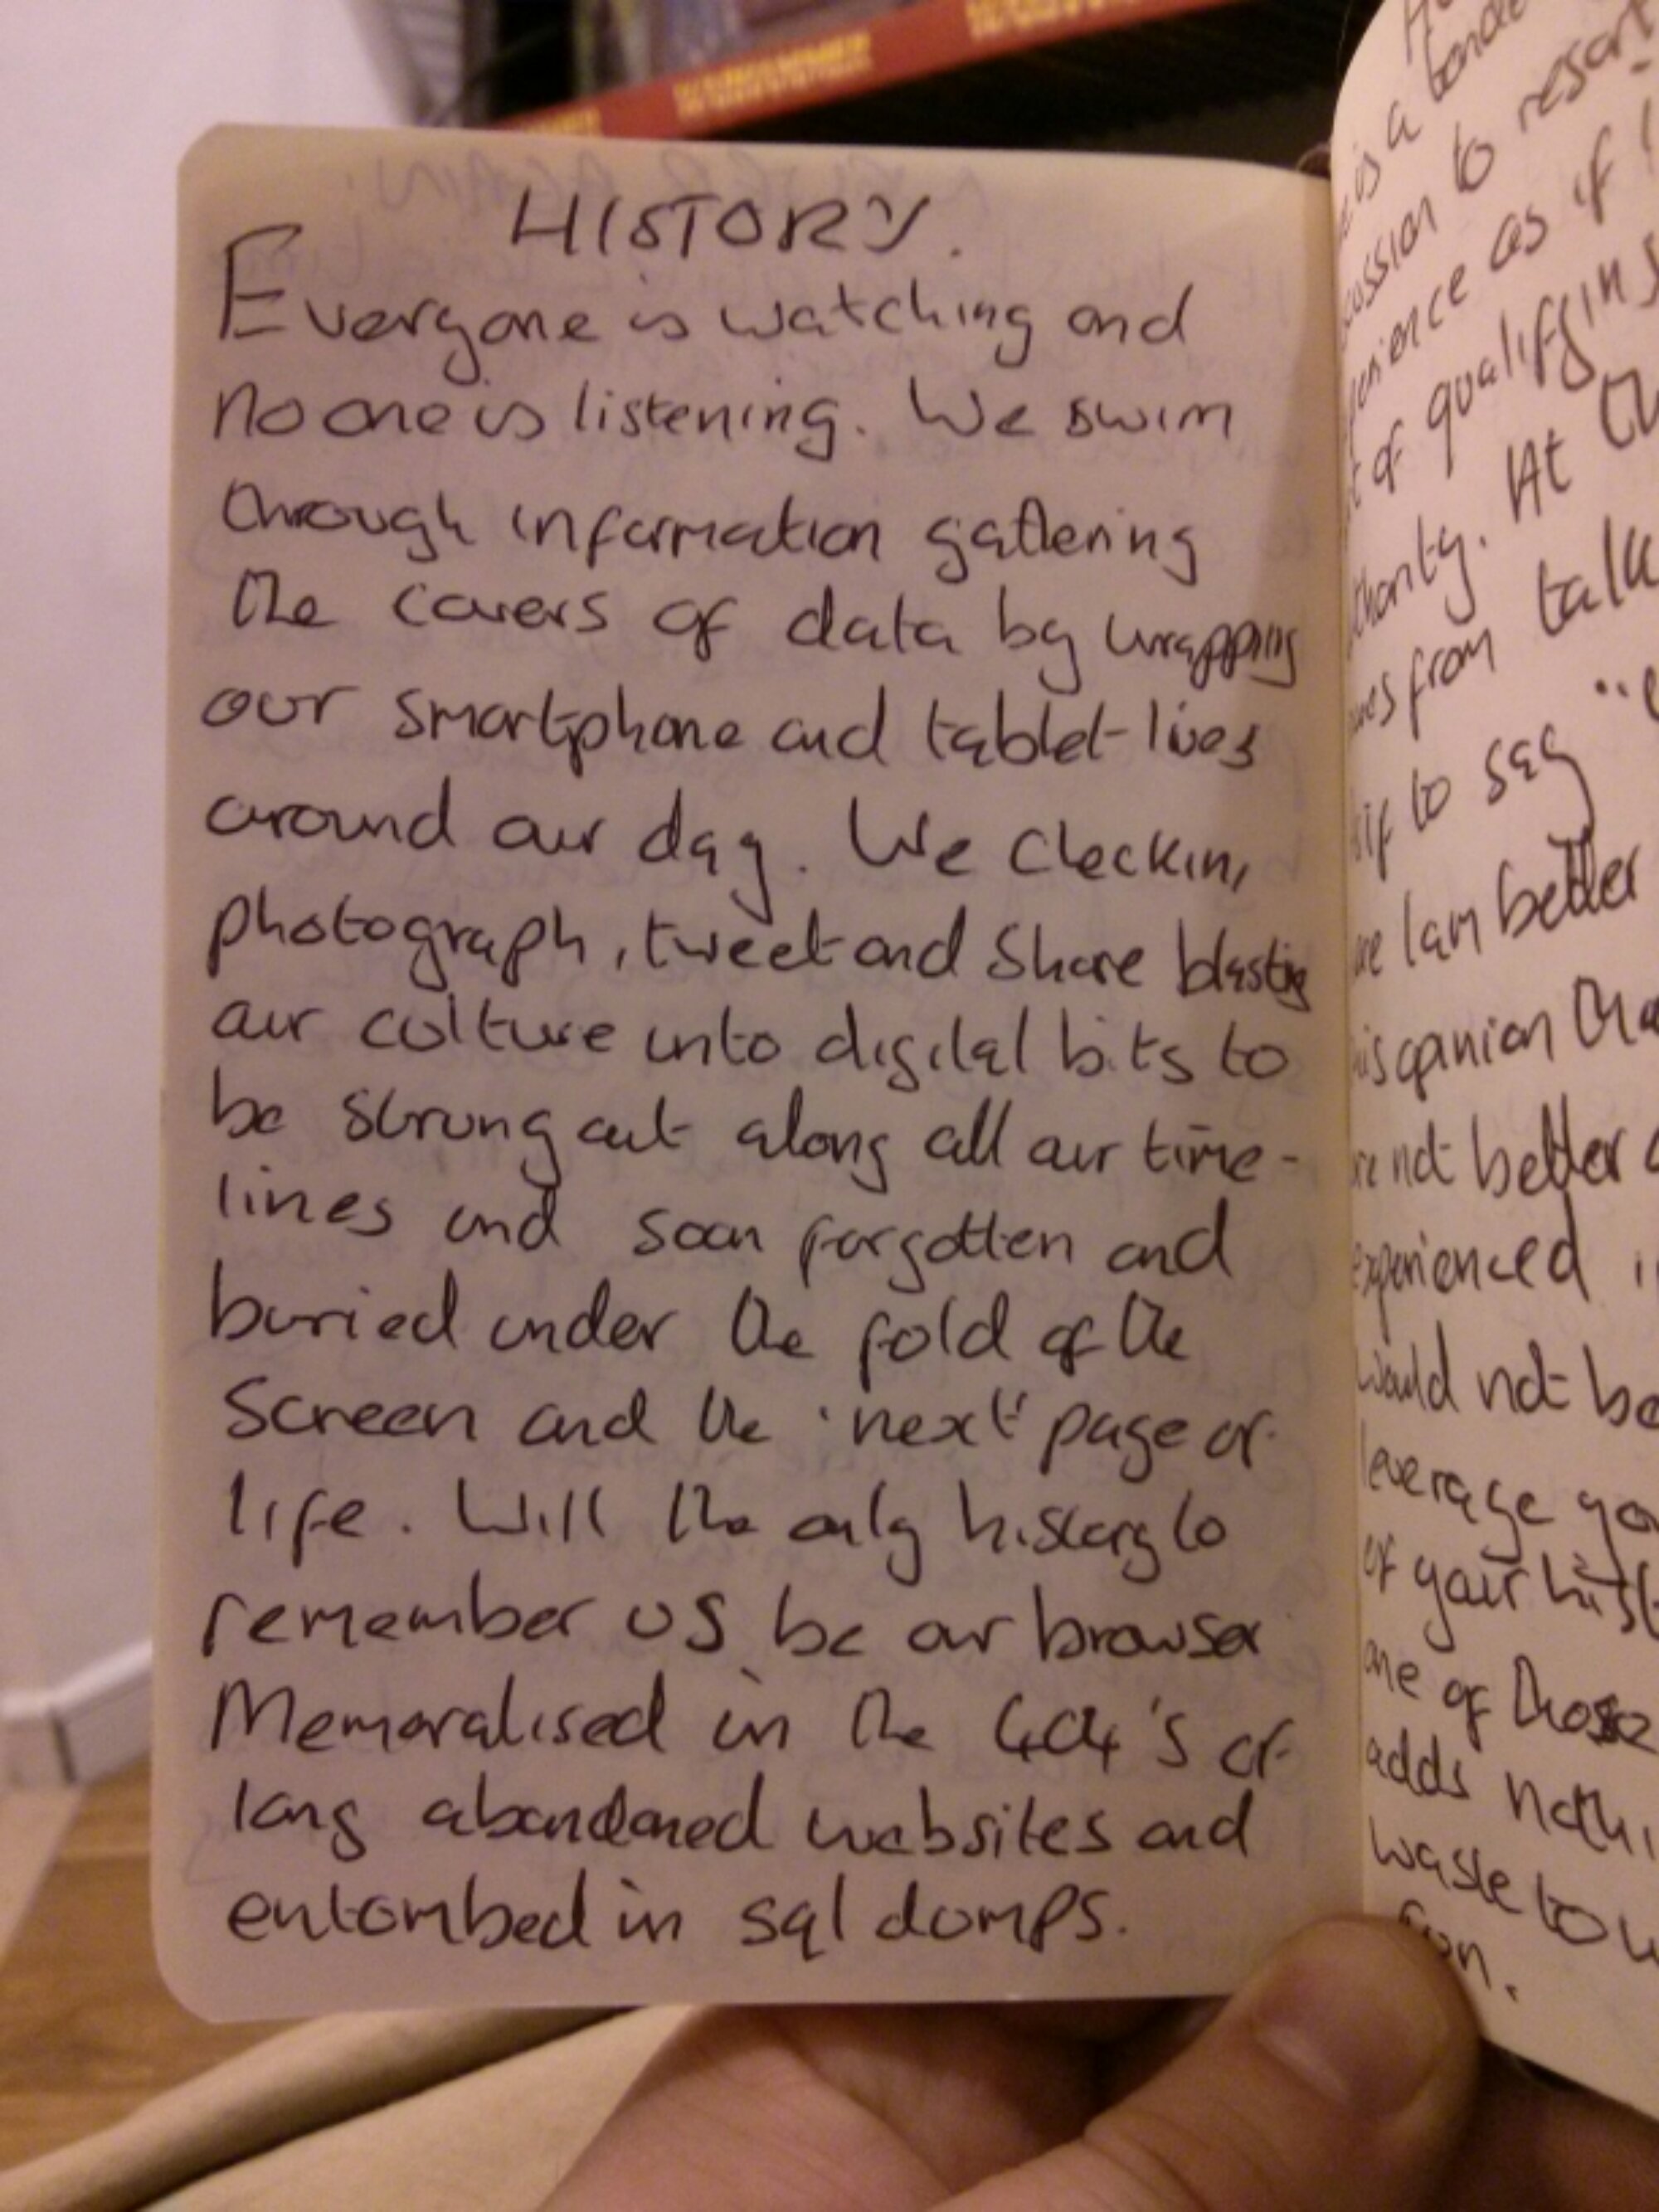 HISTORY.
Everyone is watching and
no one is listening. We swim
through information gathering
the covers of data by wrapping
our smartphone and tablet lives
around our day. We Checkin,
photograph, tweet and Share blasting
our culture into digital bits to
be strung out along all our time-
lines and soon forgotten and
buried under the fold of the
Screen and the 'next' page of
life. Will the only history to
remember us be our browser
Memoralised in the 404's of
long abandoned websites and
entombed in sql dumps.
is a
to resort
as if
of qualifying
At
from talk
to say
I am better
opinion
not better
experienced
would not be
leverage
of your
one of those
adds
waste to